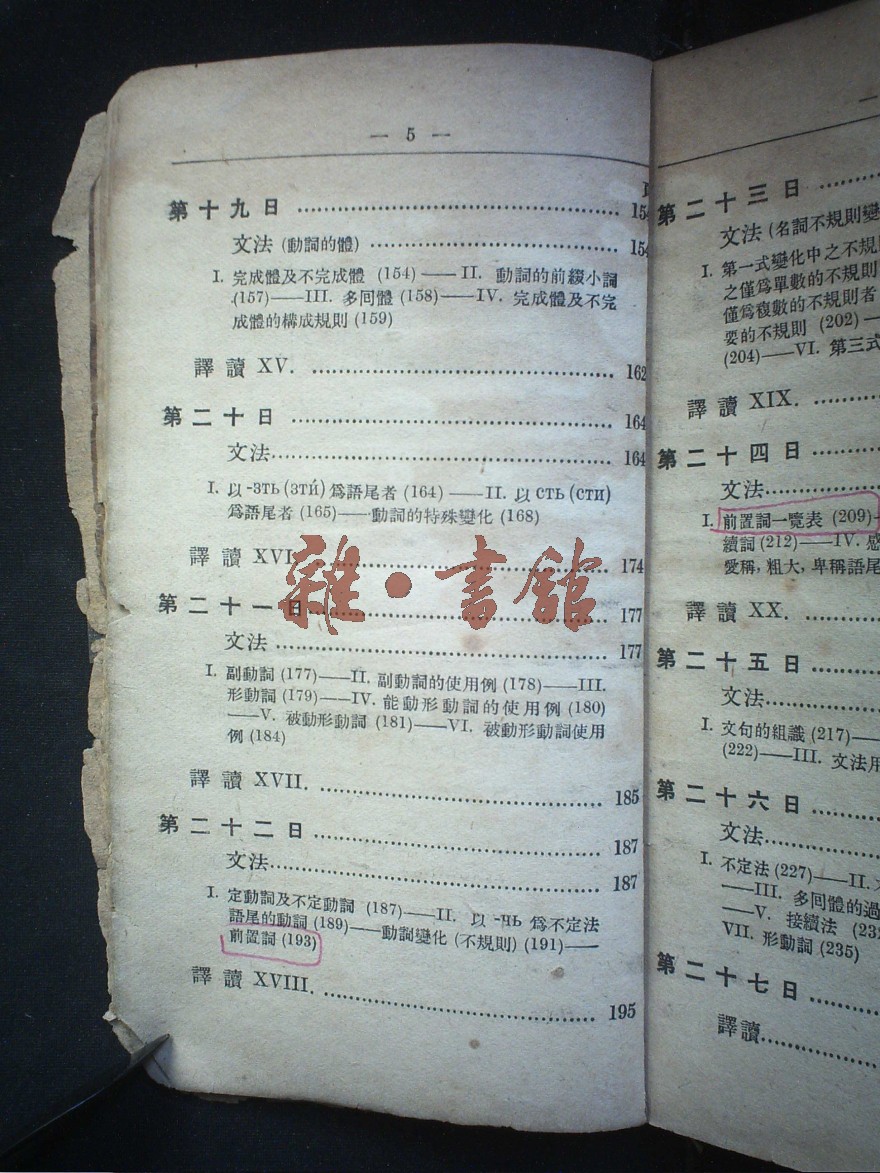 — 5 —
頁
第十九日 154
文法 (動詞的體) 154
I. 完成體及不完成體 (154) —— II. 動詞的前綴小詞
(157)——III. 多回體 (158)——IV. 完成體及不完
成體的構成規則 (159)
譯讀 XV. 162
第二十日 164
文法 164
I. 以 -зть (зти́) 爲語尾者 (164) —— II. 以 сть (сти)
爲語尾者 (165)——動詞的特殊變化 (168)
譯讀 XVI 174
雜·書館
第二十一日 177
文法 177
I. 副動詞 (177)——II. 副動詞的使用例 (178)——III.
形動詞 (179)——IV. 能動形動詞的使用例 (180)
——V. 被動形動詞 (181)——VI. 被動形動詞使用
例 (184)
譯讀 XVII. 185
第二十二日 187
文法 187
I. 定動詞及不定動詞 (187)——II. 以 -чь 爲不定法
語尾的動詞 (189)——動詞變化 (不規則) (191)——
前置詞 (193)
譯讀 XVIII. 195
第二十三日
文法 (名詞不規則變
I. 第一式變化中之不規
之僅爲單數的不規則
僅爲複數的不規則者
要的不規則 (202)—
(204)——VI. 第三式
譯讀 XIX.
第二十四日
文法
I. 前置詞一覽表 (209)
續詞 (212)——IV. 感
愛稱, 粗大, 卑稱語尾
譯讀 XX.
第二十五日
文法
I. 文句的組識 (217)——
(222)——III. 文法用
第二十六日
文法
I. 不定法 (227)——II.
——III. 多回體的過
——V. 接續法
VII. 形動詞 (235)
第二十七日
譯讀